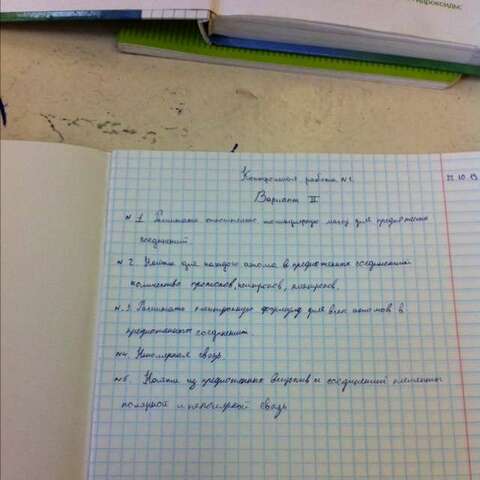 гидроксиды
Контрольная работа №1.
22.10.13
Вариант II
№1. относительную молекулярную массу для предложенных
соединений
№2. Найти для каждого атома в предложенных соединениях
количество протонов, нейтронов, электронов.
№3. электронную формулу для всех атомов в
предложенных соединениях
№4. Ионная связь
№5. Найти из предложенных веществ и соединений элементы
полярной и неполярной связь